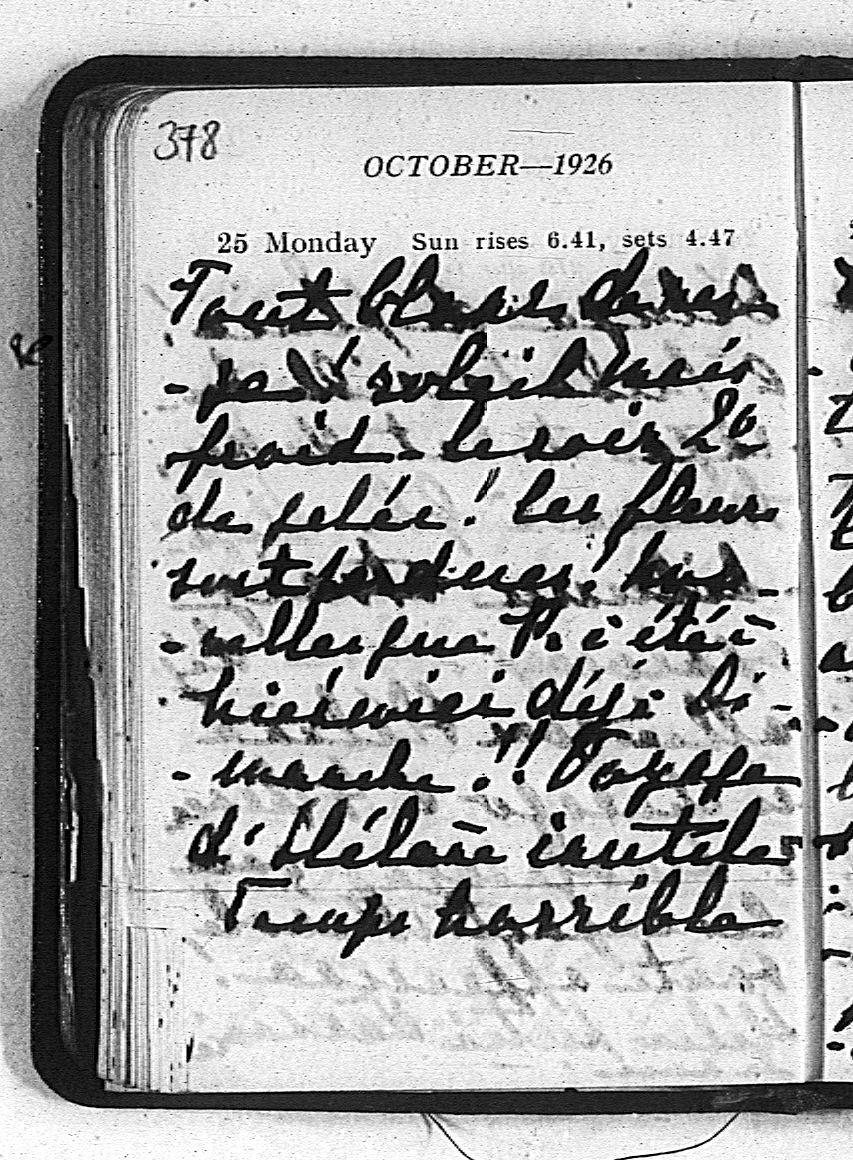 378
OCTOBER—1926
25 Monday Sun rises 6.41, sets 4.47
Tout blanc dehors
soleil mais
froid. le soir 20
de gelée! Les fleurs
sont perdues! Nou
-velles que P. a été
hier déjà Di
-manche!! Voyage
d'Hélène inutile
Temps horrible